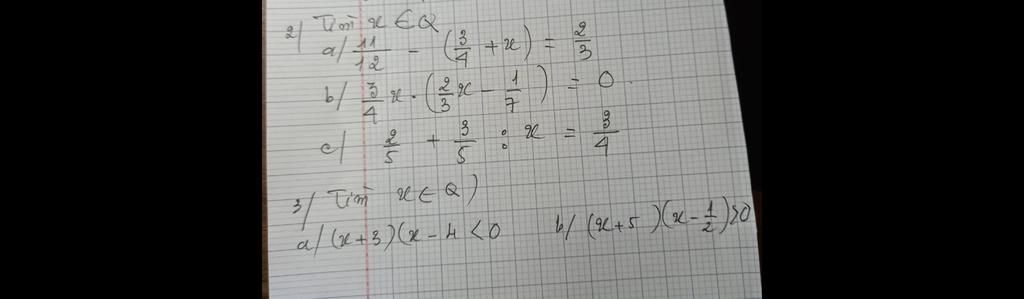 2/ Tìm x ∈ Q
a/ 11/12 - (3/4 + x) = 2/3
b/ 3/4 x . (2/3 x - 1/7) = 0
c/ 2/5 + 3/5 : x = 3/4
3/ Tìm x ∈ Q)
a/ (x+3)(x-4 < 0 b/ (x+5)(x-1/2) > 0